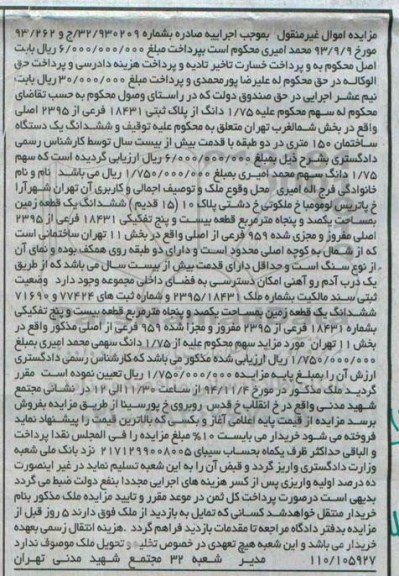 مزایده اموال غیرمنقول بموجب اجراییه صادره بشماره ۹۳۰۲۰۹/۳۲/ج و ۹۳/۲۶۲
مورخ ۹۳/۹/۹ محمد امیری محکوم است بپرداخت مبلغ ۶/۰۰۰/۰۰۰/۰۰۰ ریال بابت
اصل محکوم به و پرداخت خسارت تاخیر تادیه و پرداخت هزینه دادرسی و پرداخت حق
الوکاله در حق محکوم له علیرضا پورمحمدی و پرداخت مبلغ ۳۰/۰۰۰/۰۰۰ ریال بابت
نیم عشر اجرایی در حق صندوق دولت که در راستای وصول محکوم به حسب تقاضای
محکوم له سهم محکوم علیه ۱/۷۵ دانگ از پلاک ثبتی ۱۸۴۳۱ فرعی از ۲۳۹۵ اصلی
واقع در بخش شمالغرب تهران متعلق به محکوم علیه توقیف و ششدانگ یک دستگاه
ساختمان ۱۵۰ متری در دو طبقه با قدمت بیش از بیست سال توسط کارشناس رسمی
دادگستری بشرح ذیل بمبلغ ۶/۰۰۰/۰۰۰/۰۰۰ ریال ارزیابی گردیده است که سهم
۱/۷۵ دانگ سهم محمد امیری بمبلغ ۱/۷۵۰/۰۰۰/۰۰۰ ریال می باشد نام و نام
خانوادگی فرج اله امیری محل وقوع ملک و توصیف اجمالی و کاربری آن تهران شهرآرا
خ پاتریس لومومبا خ ملکوتی خ دشتی پلاک ۱۰ (۱۵ قدیم ) ششدانگ یک قطعه زمین
بمساحت یکصد و پنجاه مترمربع قطعه بیست و پنج تفکیکی ۱۸۴۳۱ فرعی از ۲۳۹۵
اصلی مفروز و مجزی شده ۹۵۹ فرعی از اصلی واقع در بخش ۱۱ تهران ساختمانی است
که از شمال به کوچه اصلی محدود است و دارای دو طبقه روی همکف بوده و نمای آن
از نوع سنگ است و حداقل دارای قدمت بیش از بیست سال می باشد که از طریق
یک درب آدم رو آهنی امکان دسترسی به فضای داخلی مجموعه وجود دارد وضعیت
ثبتی سند مالکیت بشماره ملک ۲۳۹۵/۱۸۴۳۱ و شماره ثبت های ۷۷۴۲۴ و ۷۱۶۹۰
ششدانگ یک قطعه زمین بمساحت یکصد و پنجاه مترمربع قطعه بیست و پنج تفکیکی
بشماره ۱۸۴۳۱ فرعی از ۲۳۹۵ مفروز و مجزا شده ۹۵۹ فرعی از اصلی مذکور واقع در
بخش ۱۱ تهران مورد مزاید سهم محکوم علیه از ۱/۷۵ دانگ سهمی محمد امیری بمبلغ
۱/۷۵۰/۰۰۰/۰۰۰ ریال ارزیابی شده مذکور می باشد که کارشناس رسمی دادگستری
ارزش آن را بمبلغ پایه مزایده ۱/۷۵۰/۰۰۰/۰۰۰ ریال تعیین نموده است مقرر
گردید ملک مذکور در مورخ ۹۴/۱۱/۴ از ساعت ۱۱/۳۰ الی ۱۲ در نشانی مجتمع
شهید مدنی واقع در خ انقلاب خ قدس روبروی خ پورسینا از طریق مزایده بفروش
برسد مزایده از قیمت پایه اعلامی آغاز و بکسی که بالاترین قیمت را پیشنهاد نماید
فروخته می شود خریدار می بایست ۱۰% مبلغ مزایده را فی المجلس نقدا پرداخت
و الباقی حداکثر ظرف یکماه بحساب سیبای ۲۱۷۱۲۹۹۰۰۸۰۰۵ نزد بانک ملی شعبه
وزارت دادگستری واریز گردد و قبض آن را به این شعبه تسلیم نماید در غیر اینصورت
ده درصد اولیه واریزی پس از کسر هزینه های اجرایی مجددا بنفع دولت ضبط می گردد
بدیهی است درصورت پرداخت کل ثمن در موعد مقرر و تایید مزایده ملک مذکور بنام
خریدار منتقل خواهدشد کسانی که تمایل به بازدید از ملک فوق دارند ۵ روز قبل از
مزایده بدفتر دادگاه مراجعه تا مقدمات بازدید فراهم گردد .هزینه انتقال رسمی بعهده
خریدار می باشد و این شعبه هیچ تعهدی در خصوص تخلیه و تحویل ملک موصوف ندارد
۱۱۰/۱۰۵۹۲۷ مدیر شعبه ۳۲ مجتمع شهید مدنی تهران